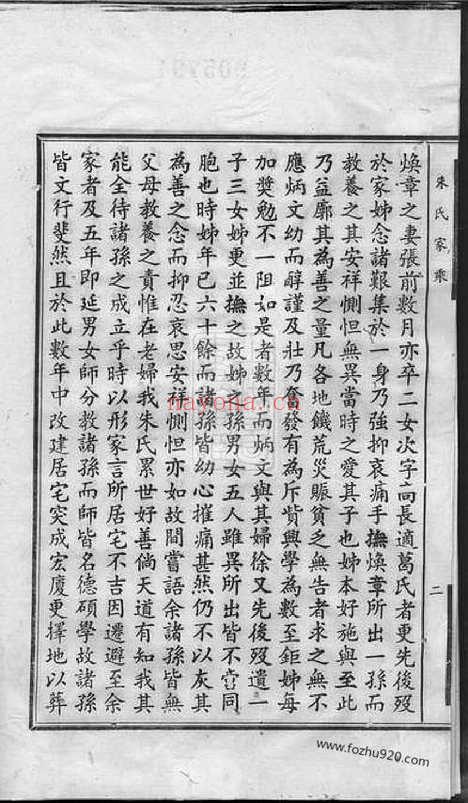 朱氏家乘
二
煥章之妻張前數月亦卒二女次字高長適葛氏者更先後歿
於家姊念諸艱集於一身乃強抑哀痛手撫煥章所出一孫而
教養之其安祥惻怛無異當時之愛其子也姊本好施與至此
乃益廓其為善之量凡各地饑荒災賑貧乏無告者求之無不
應炳文幼而醇謹及壯乃奮發有為斥貲興學為數至鉅姊每
加奬勉不一阻如是者數年而炳文與其婦徐又先後歿遺一
子三女姊更並撫之故姊諸孫男女五人雖異所出皆不啻同
胞也時姊年已六十餘而諸孫皆幼心摧痛甚然仍不以灰其
為善之念而抑忍哀思安祥惻怛亦如故間嘗語余諸孫皆無
父母教養之責惟在老婦我朱氏累世好善倘天道有知我其
能全待諸孫之成立乎時以形家言所居宅不吉因遷避至余
家者及五年即延男女師分教諸孫而師皆名德碩學故諸孫
皆文行斐然且於此數年中改建居宅突成宏廈更擇地以葬
nayona.cn
www.fozhu920.com